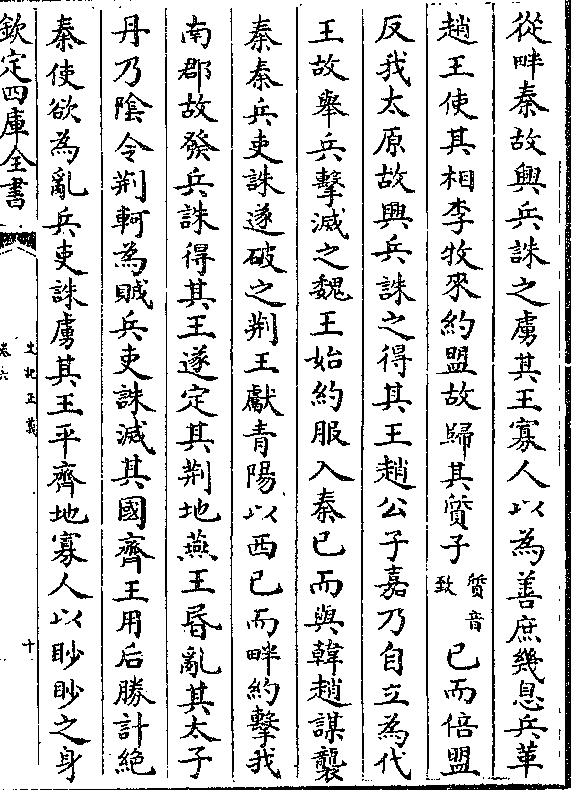 從畔秦故興兵誅之虜其王寡人以為善庶幾息兵革
趙王使其相李牧來約盟故歸其質子質音致已而倍盟
反我太原故興兵誅之得其王趙公子嘉乃自立為代
王故舉兵擊滅之魏王始約服入秦已而與韓趙謀襲
秦秦兵吏誅遂破之荆王獻青陽以西已而畔約擊我
南郡故發兵誅得其王遂定其荆地燕王昬亂其太子
丹乃陰令荆軻為賊兵吏誅滅其國齊王用后勝計絶
秦使欲為亂兵吏誅虜其王平齊地寡人以眇眇之身
欽定四庫全書
史記正義
卷六
十